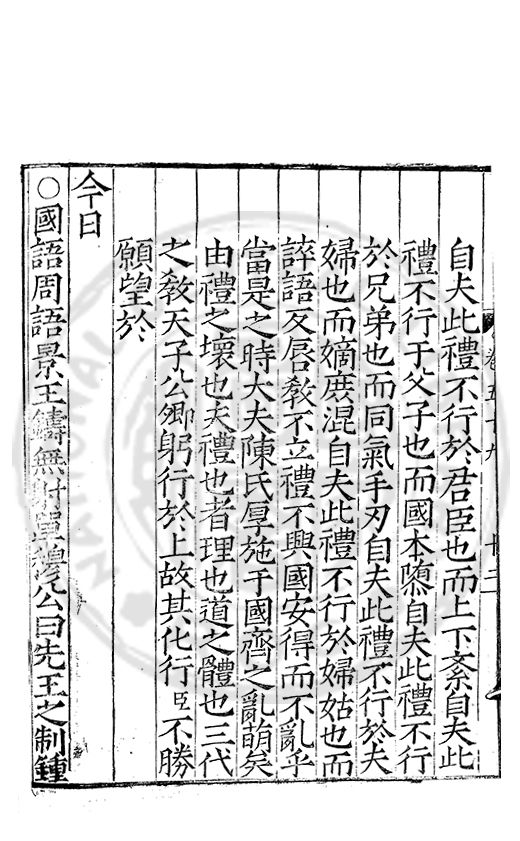 卷五十九　十三
自夫此禮不行於君臣也而上下紊自夫此
禮不行于父子也而國本隳自夫此禮不行
於兄弟也而同氣手刃自夫此禮不行於夫
婦也而嫡庶混自夫此禮不行於婦姑也而
誶語反唇敎不立禮不興國安得而不亂乎
當是之時大夫陳氏厚施于國齊之亂萌矣
由禮之壞也夫禮也者理也道之體也三代
之敎天子公卿躬行於上故其化行臣不勝
願望於
今日
○國語周語景王鑄無射單穆公曰先王之制鍾